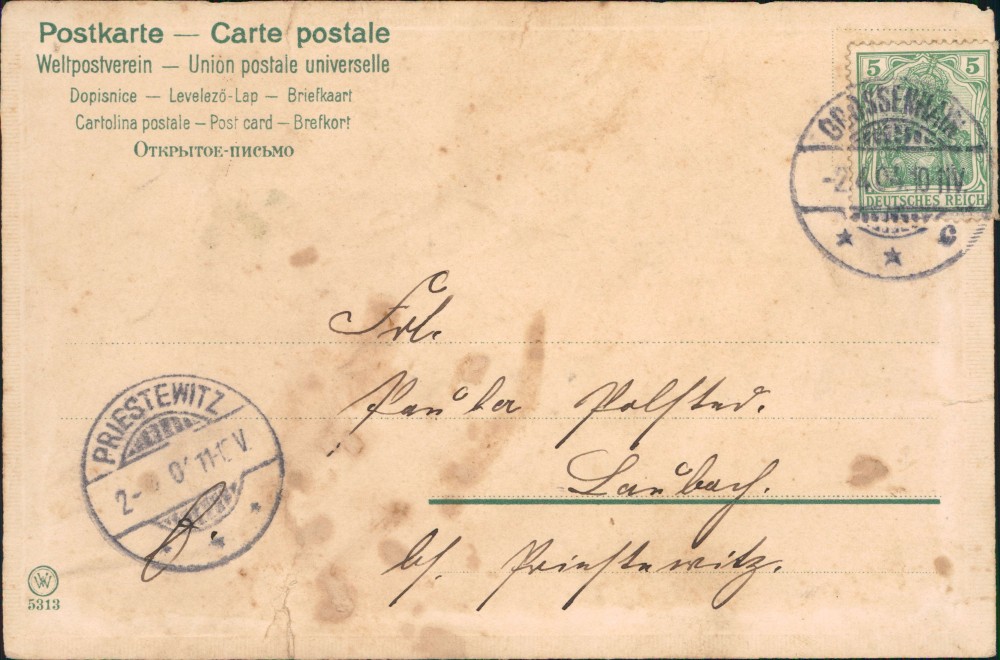 Postkarte — Carte postale
Weltpostverein — Union postale universelle
Dopisnice — Levelező-Lap — Briefkaart
Cartolina postale — Post card — Brefkort
Открытое-письмо
5 5
DEUTSCHES REICH
GROSSENHAIN
10-11V
c
Frl.
Laubach.
b/. Priestewitz.
PRIESTEWITZ
W
5313